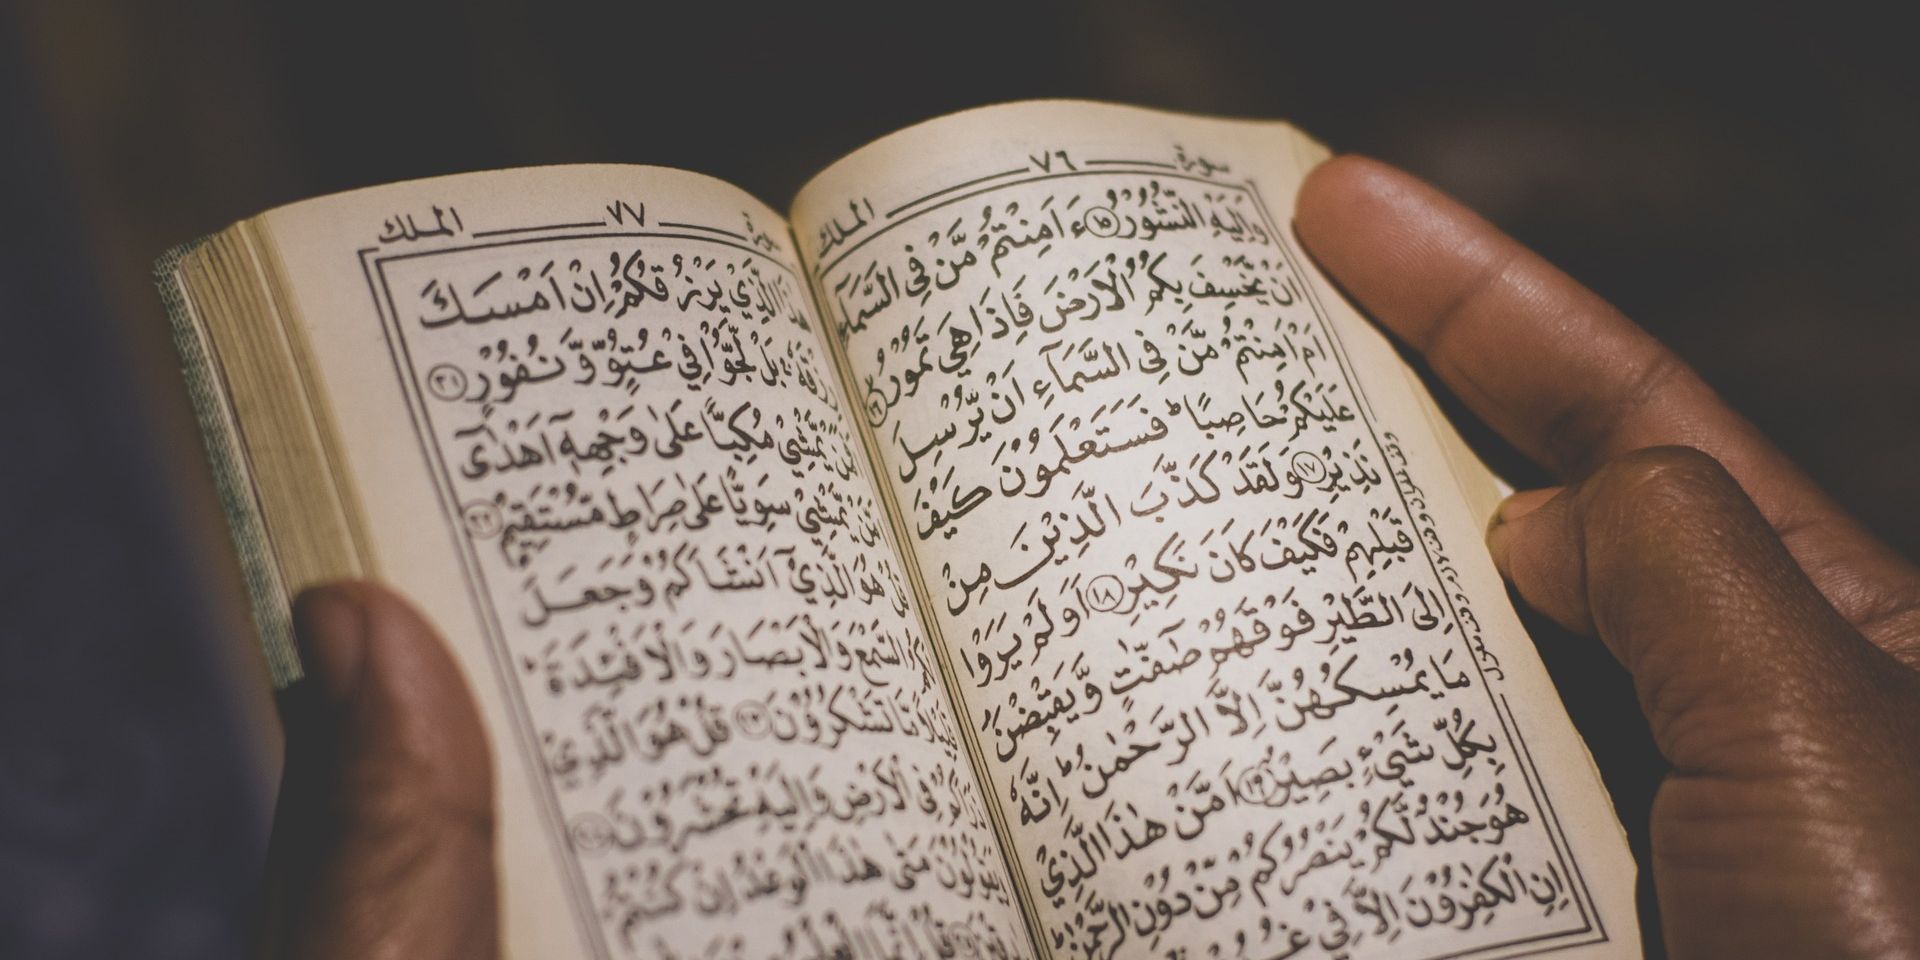 سورة ٧٦ الملك
وَاِلَيْهِ النُّشُوْرُ ١٥ ءَاَمِنْتُمْ مَّنْ فِى السَّمَآءِ
اَنْ يَّخْسِفَ بِكُمُ الْاَرْضَ فَاِذَا هِيَ تَمُوْرُ ١٦
اَمْ اَمِنْتُمْ مَّنْ فِى السَّمَآءِ اَنْ يُّرْسِلَ
عَلَيْكُمْ حَاصِبًا ؕ فَسَتَعْلَمُوْنَ كَيْفَ
نَذِيْرِ ١٧ وَلَقَدْ كَذَّبَ الَّذِيْنَ مِنْ
قَبْلِهِمْ فَكَيْفَ كَانَ نَكِيْرِ ١٨ اَوَلَمْ يَرَوْا
اِلَى الطَّيْرِ فَوْقَهُمْ صٰٓفّٰتٍ وَّيَقْبِضْنَ
مَا يُمْسِكُهُنَّ اِلَّا الرَّحْمٰنُ ؕ اِنَّهٗ
بِكُلِّ شَيْءٍ بَصِيْرٌ ١٩ اَمَّنْ هٰذَا الَّذِيْ
هُوَ جُنْدٌ لَّكُمْ يَنْصُرُكُمْ مِّنْ دُوْنِ الرَّحْمٰنِ ؕ
اِنِ الْكٰفِرُوْنَ اِلَّا فِيْ
سورة ٧٧ الملك
هٰذَا الَّذِيْ يَرْزُقُكُمْ اِنْ اَمْسَكَ
رِزْقَهٗ ۚ بَلْ لَّجُّوْا فِيْ عُتُوٍّ وَّنُفُوْرٍ ٢١
يَّمْشِيْ مُكِبًّا عَلٰى وَجْهِهٖٓ اَهْدٰٓى
يَّمْشِيْ سَوِيًّا عَلٰى صِرَاطٍ مُّسْتَقِيْمٍ ٢٢
قُلْ هُوَ الَّذِيْٓ اَنْشَاَكُمْ وَجَعَلَ
لَكُمُ السَّمْعَ وَالْاَبْصَارَ وَالْاَفْئِدَةَ ؕ
قَلِيْلًا مَّا تَشْكُرُوْنَ ٢٣ قُلْ هُوَ الَّذِيْ
ذَرَاَكُمْ فِى الْاَرْضِ وَاِلَيْهِ تُحْشَرُوْنَ ٢٤
وَيَقُوْلُوْنَ مَتٰى هٰذَا الْوَعْدُ اِنْ كُنْتُمْ
قُلْ اِنَّمَا الْعِلْمُ